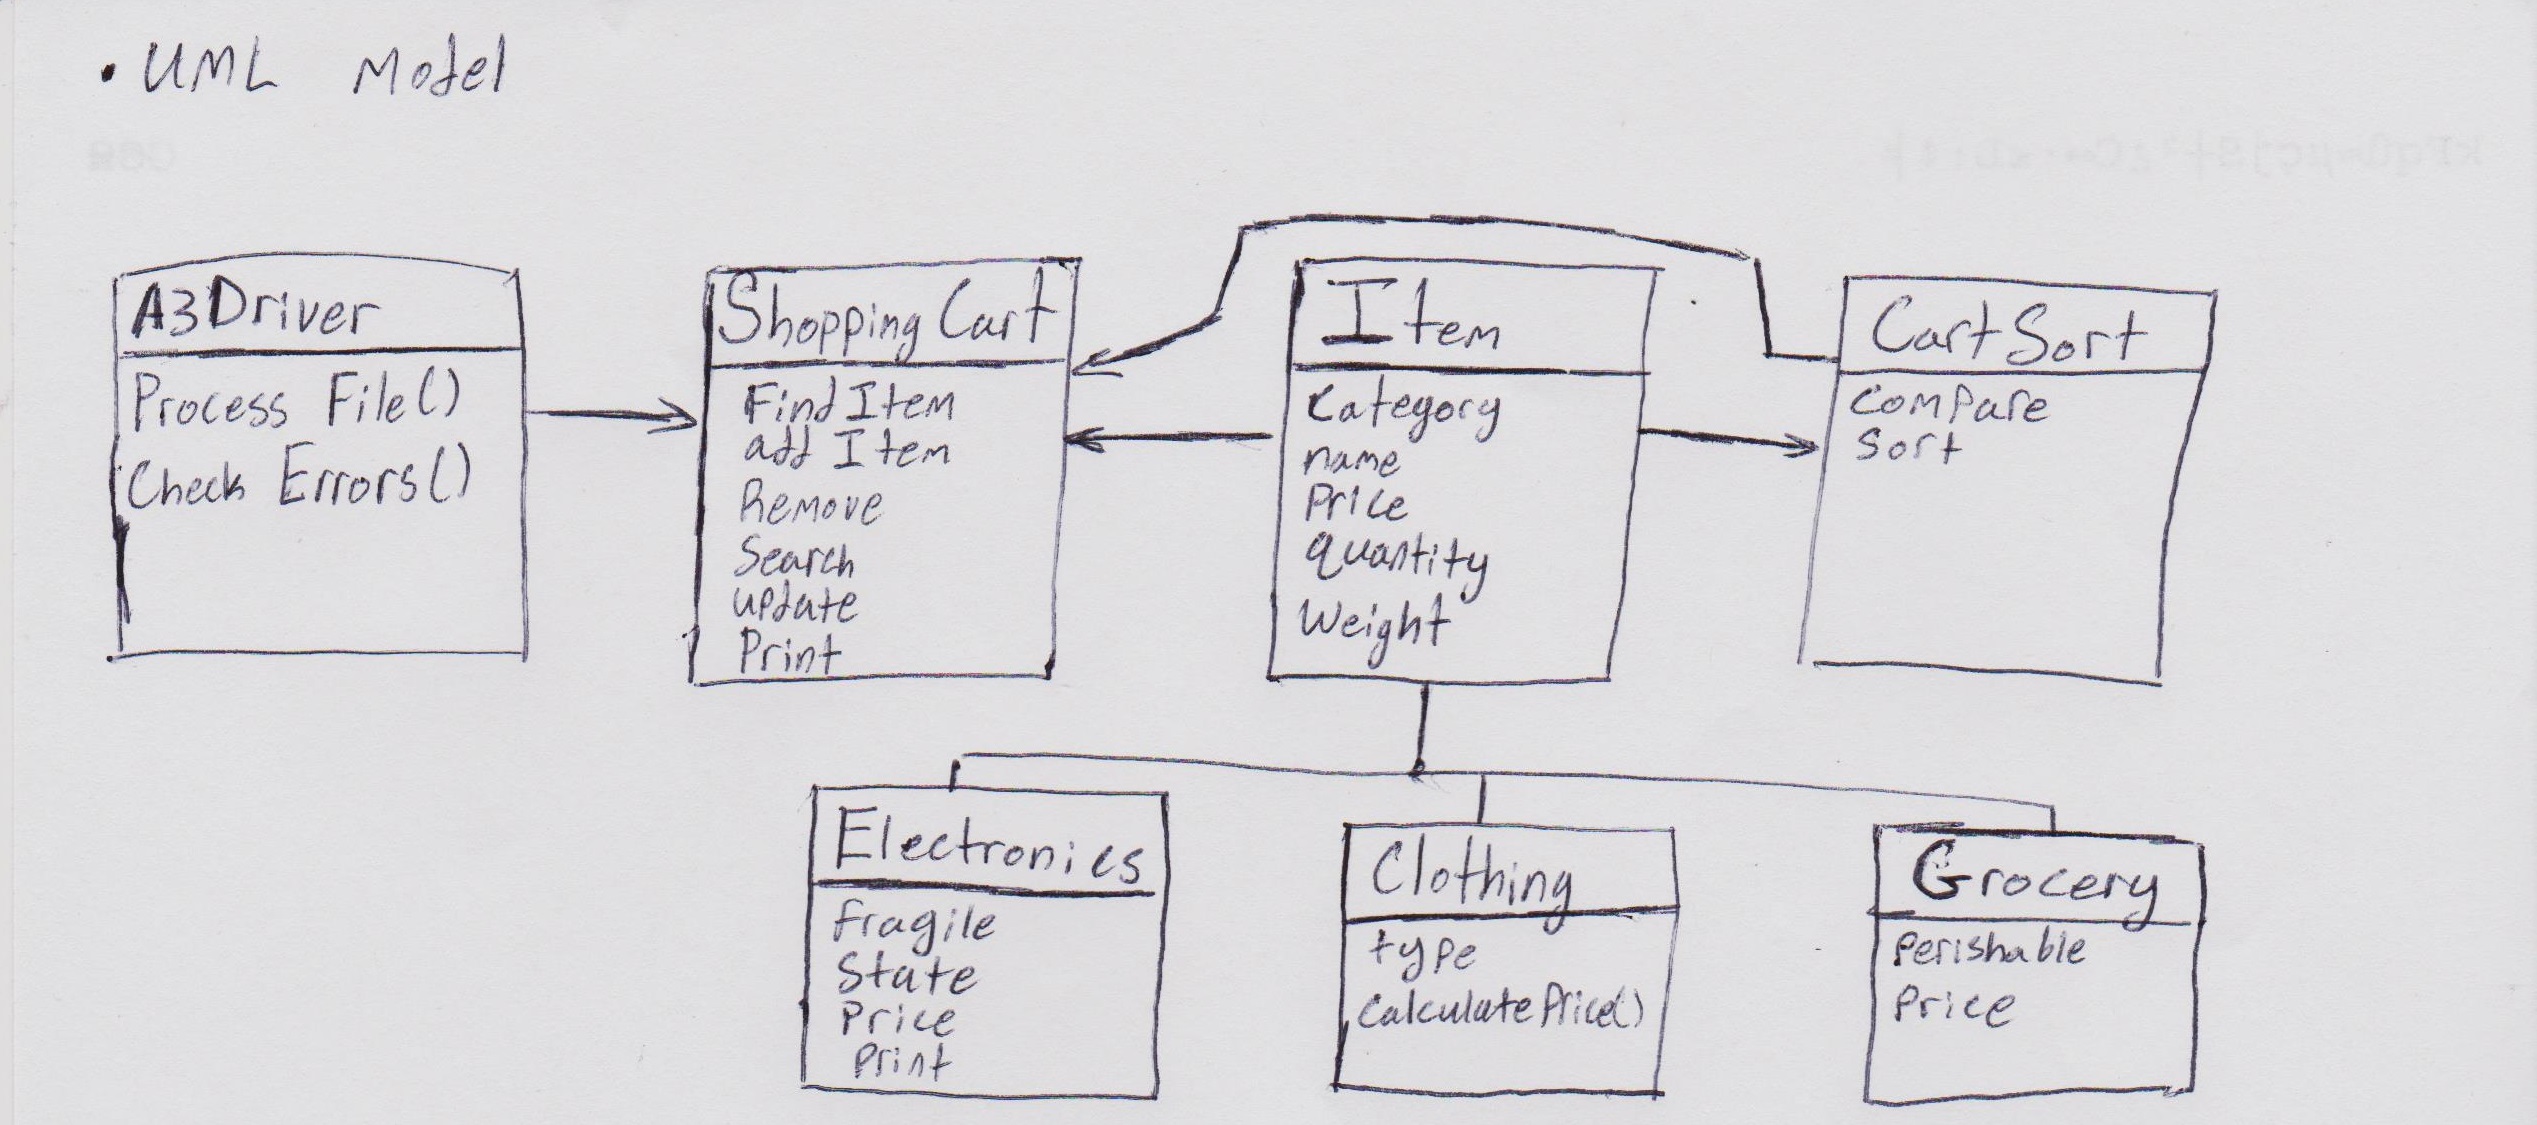 • UML Model
A3Driver
Process File()
Check Errors()
Shopping Cart
Find Item
add Item
Remove
Search
update
Print
Item
Category
name
Price
quantity
Weight
Cart Sort
Compare
Sort
Electronics
Fragile
State
Price
Print
Clothing
type
CalculatePrice()
Grocery
Perishable
Price